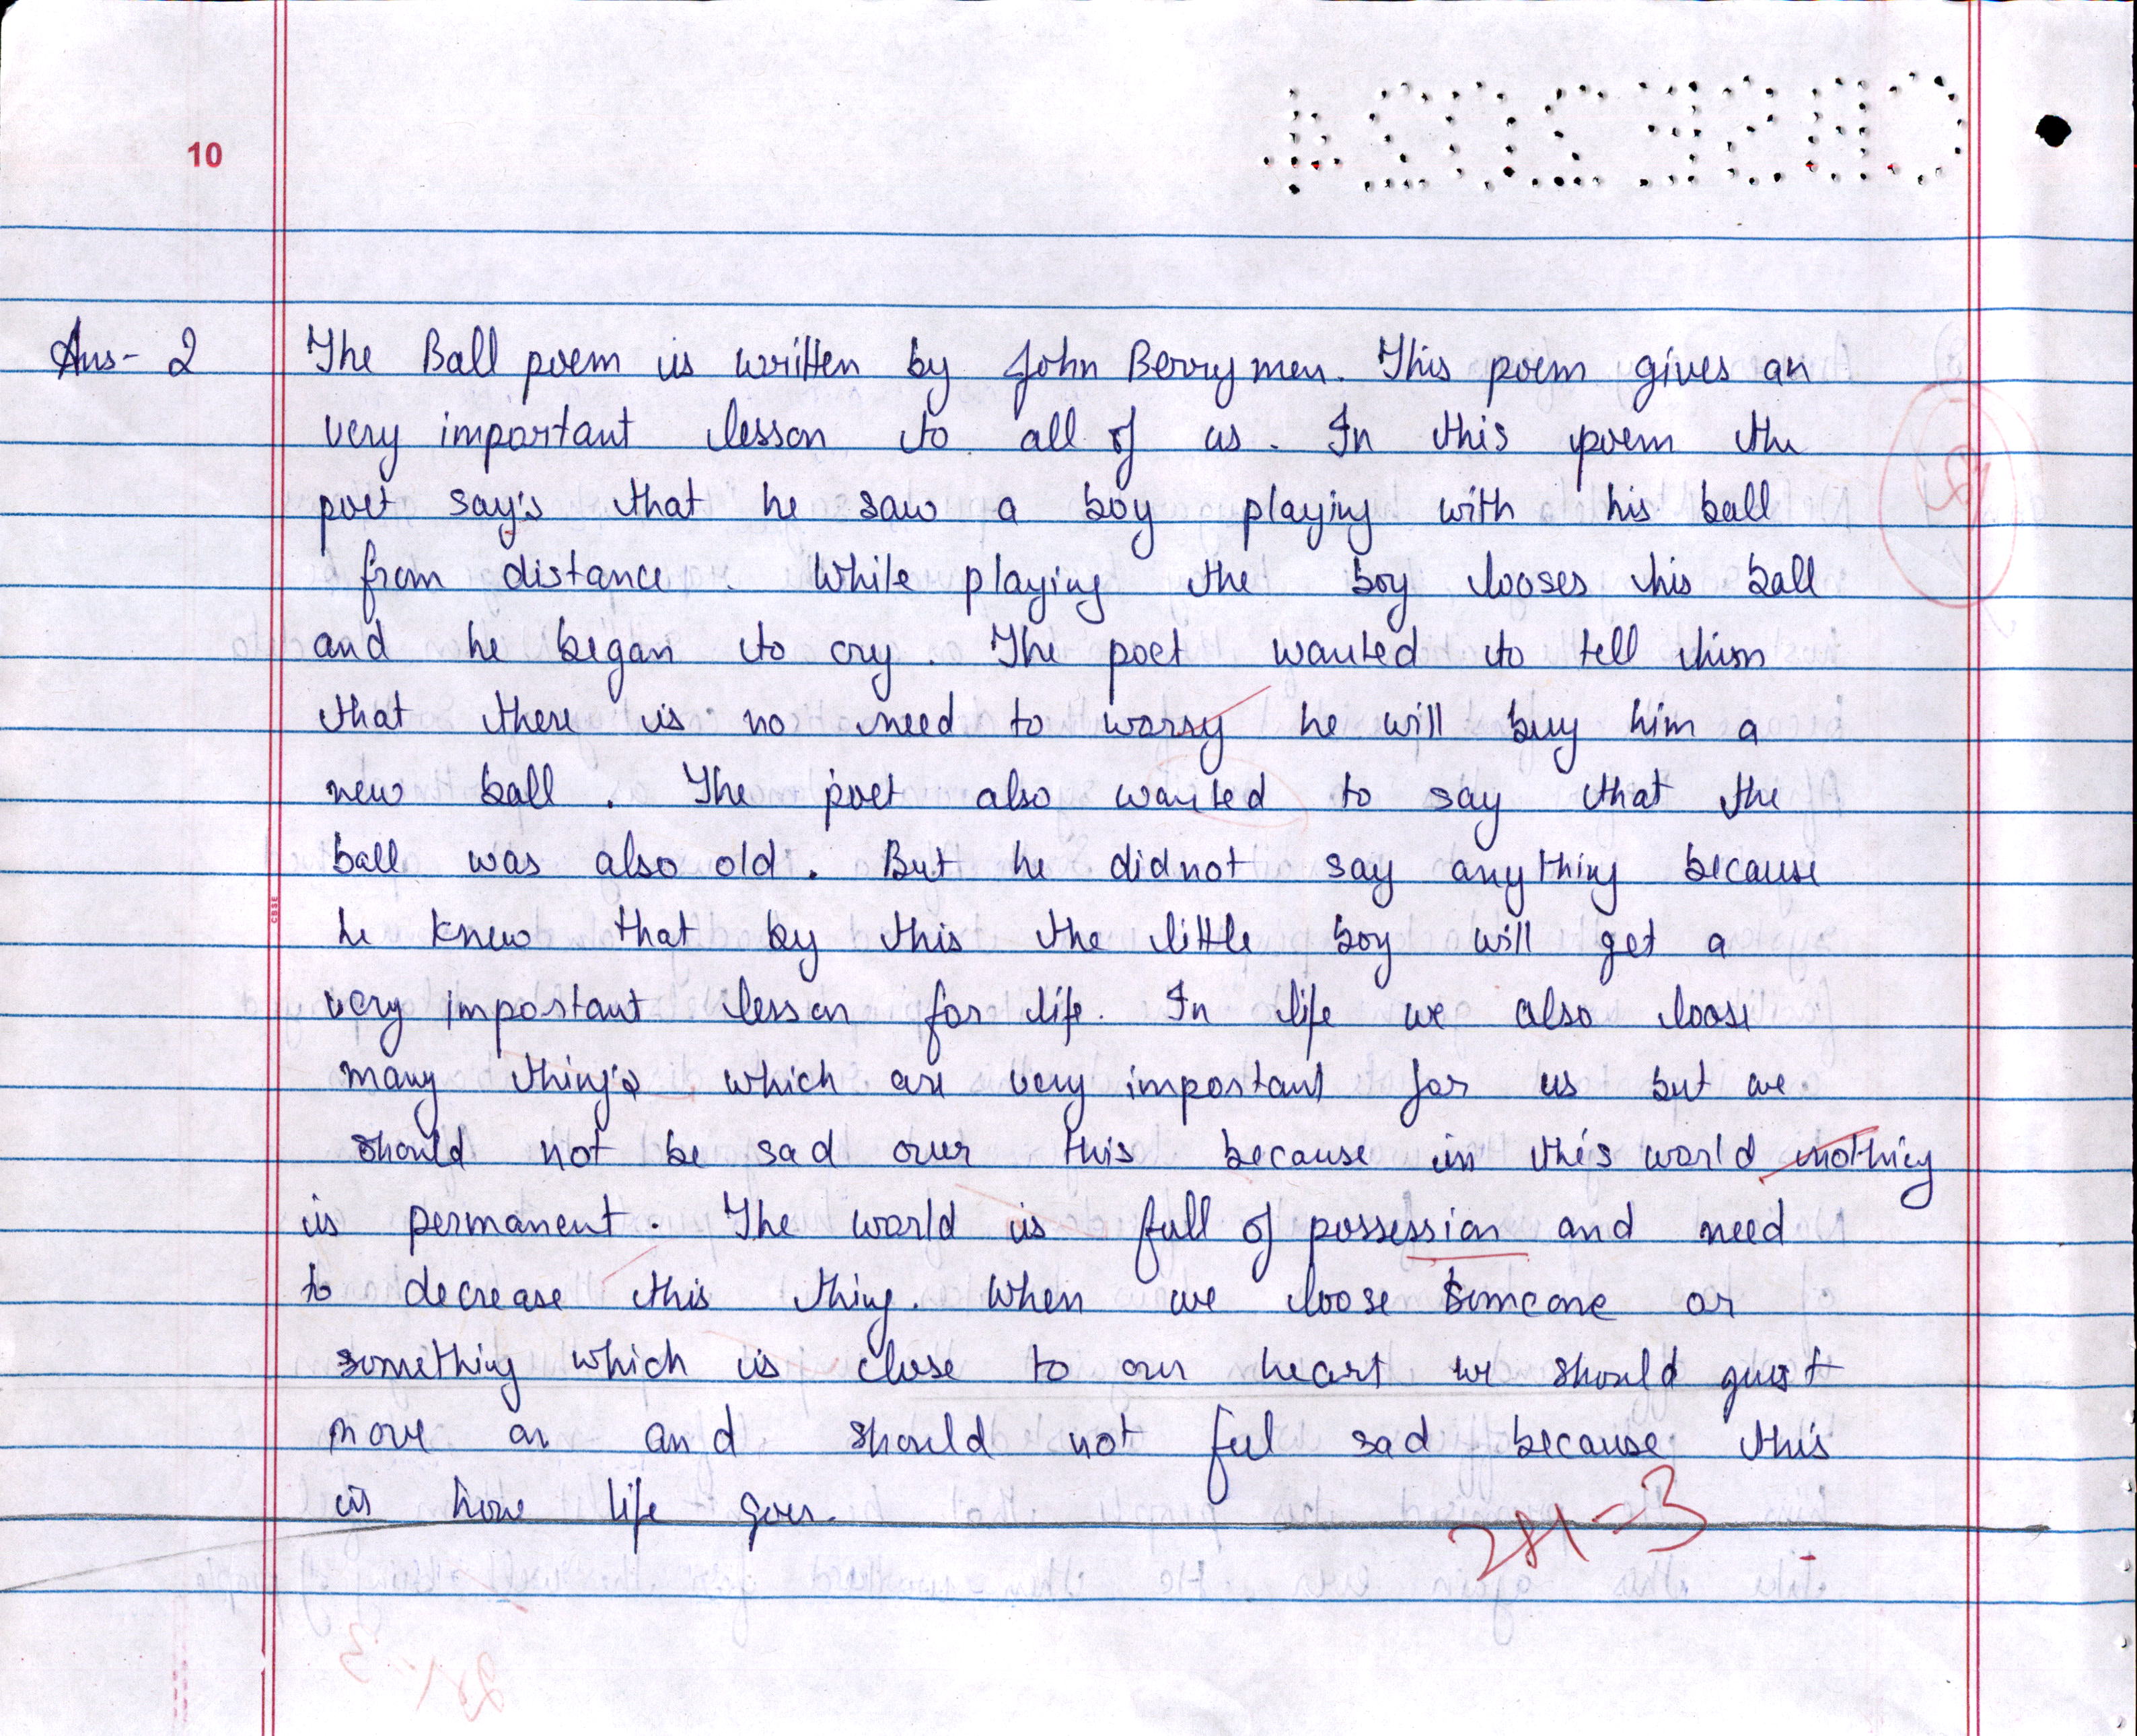 10
Ans- 2 The Ball poem is written by John Berrymen. This poem gives an
very important lesson to all of us. In this poem the
poet say's that he saw a boy playing with his ball
from distance. While playing the boy looses his ball
and he began to cry. The poet wanted to tell him
that there is no need to worry he will buy him a
new ball. The poet also wanted to say that the
ball was also old. But he didnot say anything because
he knew that by this the little boy will get a
very important lesson for life. In life we also loose
many thing's which are very important for us but we
should not be sad over this because in this world nothing
is permanent. The world is full of possession and need
to decrease this thing. When we loose someone or
something which is close to our heart we should just
move on and should not feel sad because this
is how life goes.
2+1=3
CBSE